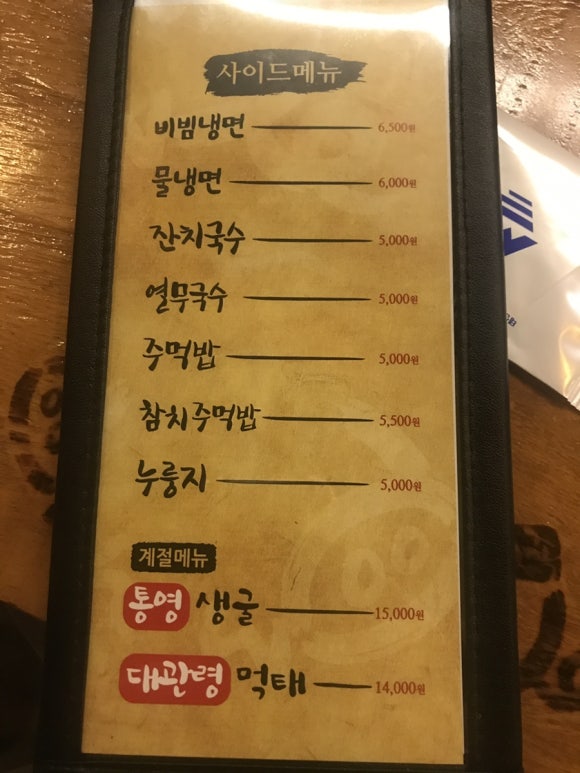 사이드메뉴
비빔냉면 6,500원
물냉면 6,000원
잔치국수 5,000원
열무국수 5,000원
주먹밥 5,000원
참치주먹밥 5,500원
누룽지 5,000원
계절메뉴
통영 생굴 15,000원
대관령 먹태 14,000원